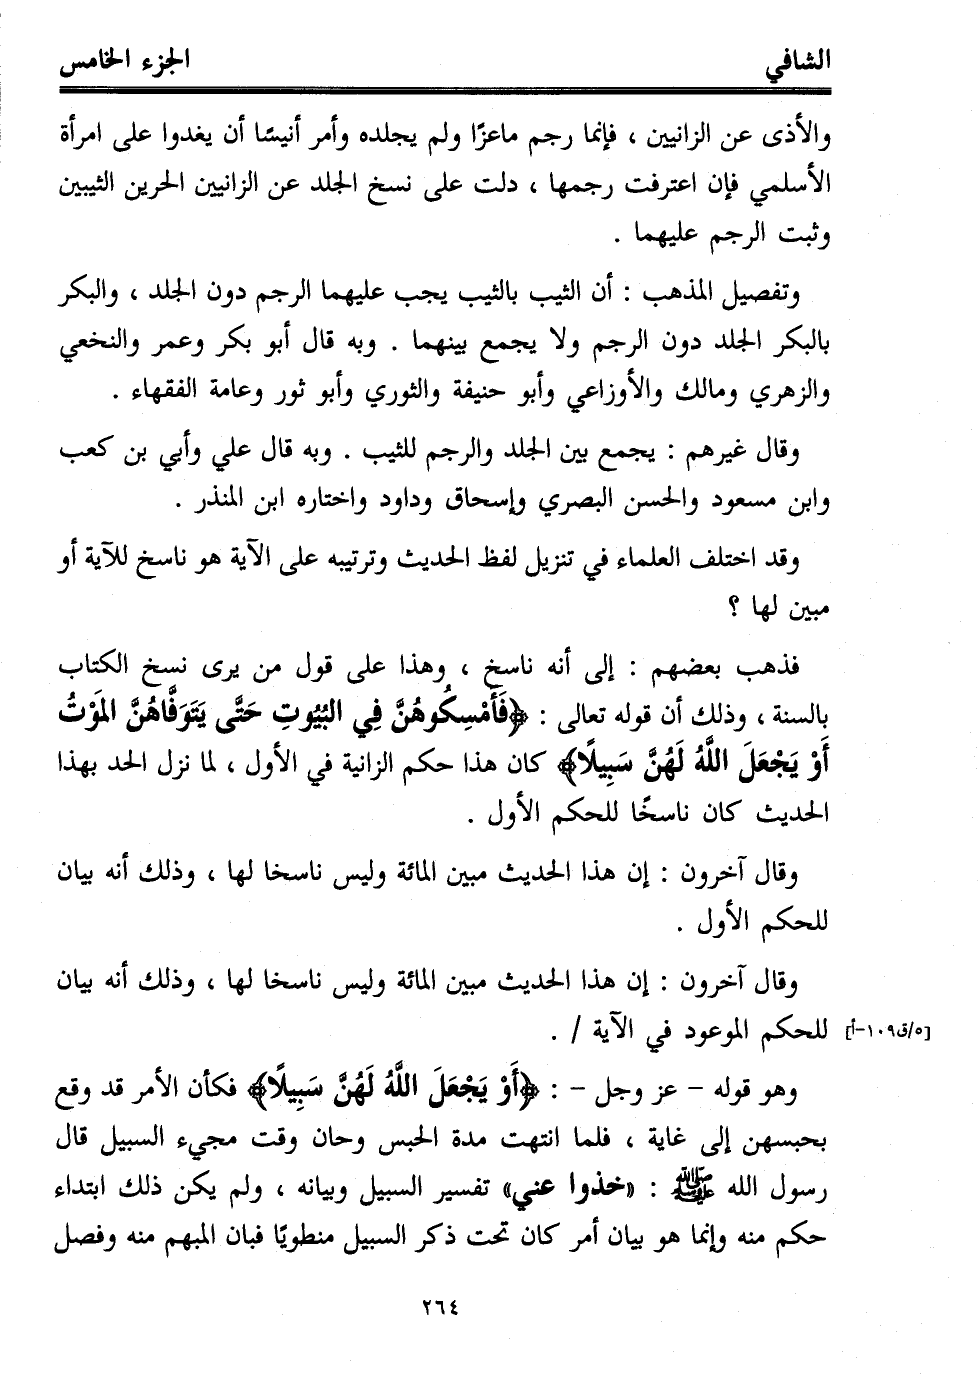 الشافي الجزء الخامس
والأذى عن الزانيين ، فإنما رجم ماعزًا ولم يجلده وأمر أنيسًا أن يغدوا على امرأة
الأسلمي فإن اعترفت رجمها ، دلت على نسخ الجلد عن الزانيين الحرين الثيبين
وثبت الرجم عليهما .
وتفصيل المذهب : أن الثيب بالثيب يجب عليهما الرجم دون الجلد ، والبكر
بالبكر الجلد دون الرجم ولا يجمع بينهما . وبه قال أبو بكر وعمر والنخعي
والزهري ومالك والأوزاعي وأبو حنيفة والثوري وأبو ثور وعامة الفقهاء .
وقال غيرهم : يجمع بين الجلد والرجم للثيب . وبه قال علي وأبي بن كعب
وابن مسعود والحسن البصري وإسحاق وداود واختاره ابن المنذر .
وقد اختلف العلماء في تنزيل لفظ الحديث وترتيبه على الآية هو ناسخ للآية أو
مبين لها ؟
فذهب بعضهم : إلى أنه ناسخ ، وهذا على قول من يرى نسخ الكتاب
بالسنة ، وذلك أن قوله تعالى : ﴿فَأَمْسِكُوهُنَّ فِي البُيُوتِ حَتَّى يَتَوَفَّاهُنَّ المَوْتُ
أَوْ يَجْعَلَ اللَّهُ لَهُنَّ سَبِيلًا﴾ كان هذا حكم الزانية في الأول ، لما نزل الحد بهذا
الحديث كان ناسخًا للحكم الأول .
وقال آخرون : إن هذا الحديث مبين المائة وليس ناسخا لها ، وذلك أنه بيان
للحكم الأول .
وقال آخرون : إن هذا الحديث مبين المائة وليس ناسخا لها ، وذلك أنه بيان
[٥/ق١٠٩-أ] للحكم الموعود في الآية / .
وهو قوله - عز وجل - : ﴿أَوْ يَجْعَلَ اللَّهُ لَهُنَّ سَبِيلًا﴾ فكأن الأمر قد وقع
بحبسهن إلى غاية ، فلما انتهت مدة الحبس وحان وقت مجيء السبيل قال
رسول الله ﷺ : «خذوا عني» تفسير السبيل وبيانه ، ولم يكن ذلك ابتداء
حكم منه وإنما هو بيان أمر كان تحت ذكر السبيل منطويًا فبان المبهم منه وفصل
٢٦٤